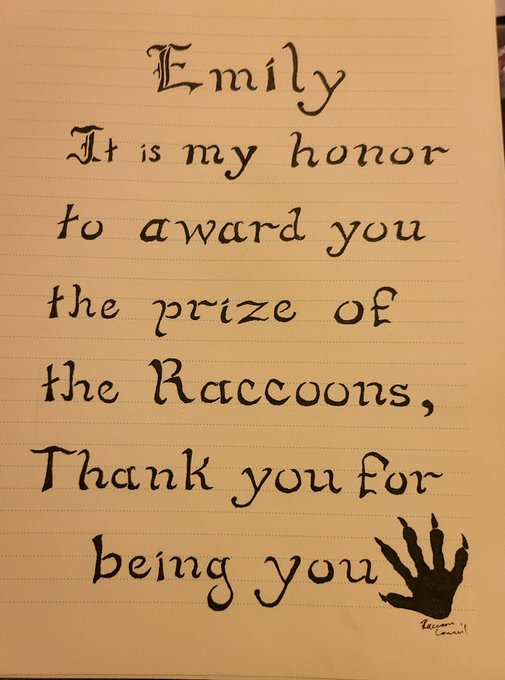 Emily
It is my honor
to award you
the prize of
the Raccoons,
Thank you for
being you
Raccoon
Council